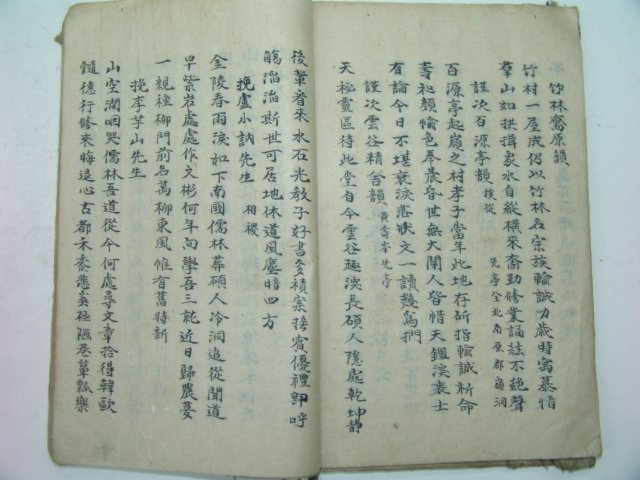 竹林齋原韻
竹村一屋成仍以竹林名宗族輸誠力歲時寓慕情
群山如拱揖衆水自縱橫來裔勤修業誦絃不絶聲
謹次百源亭韻 族從 先亭全北南原郡 洞
百源亭起崩之村孝子當年此地存斫指輸誠祈命
壽和顔愉色奉晨昏世無大闡人皆惜天鑑淚衰士
有論今日不堪衰淚落狀文一讀幾爲捫
謹次雲谷精舍韻 黃 岑先亭
天秘靈區待此堂自今雲谷趣深長碩人隱處乾坤靜
後輩看來水石光敎子好書多積案接賓優禮卽呼
觴滔滔斯世可居地休道風塵暗四方
挽盧小訥先生 相稷
金陵春雨淚如下南國儒林葬碩人冷洞追從聞道
早紫岩處處作文彬何年向學吾三 近日歸農夢
一親種柳門前名萬柳東風惟有舊時新
挽李芋山先生
山空澗咽哭儒林吾道從今何處尋文章拾得韓歐
髓德行修來晦退心古都禾黍悲 極陋巷簞瓢樂